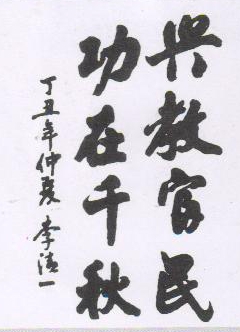 兴教富民
功在千秋
丁丑年仲夏 李清一